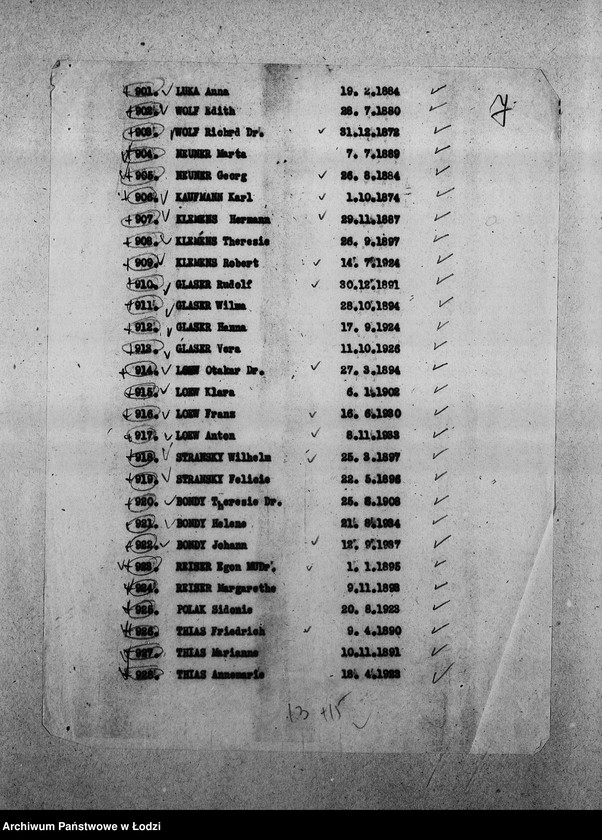 7.
901. LUKA Anna 19. 2.1884
902. WOLF Edith 28. 7.1880
903. WOLF Richrd Dr. 31.12.1872
904. NEUNER Marta 7. 7.1889
905. NEUNER Georg 26. 8.1884
906. KAUFMANN Karl 1.10.1874
907. KLEMENS Hermann 29.11.1887
908. KLEMENS Theresie 26. 9.1897
909. KLEMENS Robert 14. 7.1924
910. GLASER Rudolf 30.12.1891
911. GLASER Wilma 28.10.1894
912. GLASER Hanna 17. 9.1924
913. GLASER Vera 11.10.1926
914. LOEW Otakar Dr. 27. 3.1894
915. LOEW Klara 6. 1.1902
916. LOEW Franz 16. 6.1930
917. LOEW Anton 8.11.1933
918. STRANSKY Wilhelm 25. 3.1897
919. STRANSKY Felicie 22. 5.1896
920. BONDY Theresie Dr. 25. 8.1903
921. BONDY Helene 21. 8.1934
922. BONDY Johann 12. 9.1937
923. REISER Egon MUDr. 1. 1.1895
924. REISER Margarethe 9.11.1893
925. POLAK Sidonie 20. 8.1923
926. THIAS Friedrich 9. 4.1890
927. THIAS Marianne 10.11.1891
928. THIAS Annemarie 18. 4.1923
13 +15
Archiwum Państwowe w Łodzi